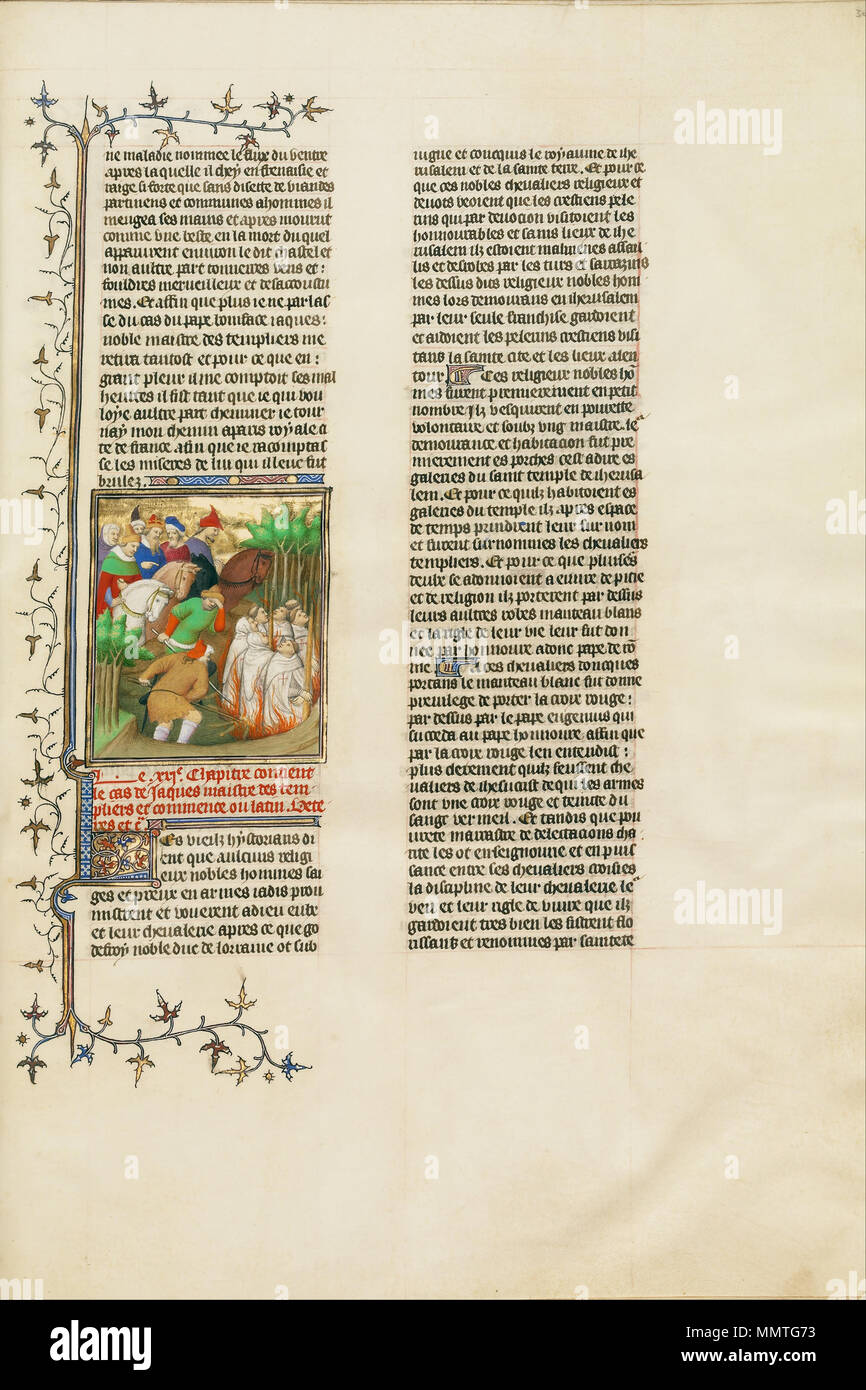 ne maladie nommee le flux du ventre
apres laquelle il cheÿ en frenaisie et
rarge si forte que sans disette de viandes
partinens et communes a hommes il
mengea ses mains et apres mourut
comme vne beste. en la mort du quel
apparurent enuiron le dit chastel et
non aultre part tonnerres vens et :
fouldres merueilleux et desacoustu
mes. Et affin que plus ie ne parlas
se du cas du pape boniface iaques :
noble maistre des templiers me
retira tantost et pour ce que en :
grant pleur il me comptoit ses mal
heurtes il fist tant que ie qui vou
loye aultre part cheminer ie tour
nay mon chemin a paris royale ci
te de france afin que ie racomptas
se les miseres de lui qui illeuc fut
brulez.
Le .xxie. Chapitre contient
le cas de Jaques maistre des tem
pliers et commence ou latin. Vete
res et c̃
Les vieilz hÿstorians di
ent que aulcuns religi
eux nobles hommes sai
ges et preux en armes iadis prou
mistrent et vouerent a dieu eulx
et leur cheualerie apres ce que go
defroy noble duc de lorraine ot sub
iugue et conquis le roÿaume de ihe
rusalem et de la sainte terre. Et pour ce
que ces nobles cheualiers religieux et
deuots veoient que les crestiens pele
rins qui par deuocion visitoient les
honnourables et sains lieux de ihe
rusalem ilz estoient malmenes assail
lis et desrobes par les turs et sarrazins
les dessus dits religieux nobles hom
mes lors demourans en iherusalem
par leur seule franchise gardoient
et aidoient les pelerins crestiens visi
tans la sainte cite et les lieux alen
tour. Ces religieux nobles hõ
mes furent premierement en petit
nombre ilz vesquirent en pourete
volontaire et soubz vng maistre. le
demourance et habitacion fut pre
mierement es porches cest a dire es
galeries du saint temple de iherusa
lem. Et pour ce quilz habitoient es
galeries du temple ilz apres espace
de temps prindrent leur sur nom
et furent surnommes les cheualiers
templiers. Et pour ce que pluiseurs
deulx se adonnoient a euure de pitie
et de religion ilz porterent par dessus
leurs aultres robes manteau blans
et la rigle de leur vie leur fut don
nee par honnoure adonc pape de rõ
me. A ces cheualiers doncques
portans le manteau blanc fut donne
preuilege de porter la croix rouge :
par dessus par le pape eugenius qui
succeda au pape honnoure affin que
par la croix rouge len entendist :
plus clerement quilz feussent che
ualiers de ihesucrist de qui les armes
sont vne croix rouge et teinte du
sanc vermeil. Et tandis que pou
urete marrastre de delectacions cha
rite les ot en seignourie et en puis
sance entre ses cheualiers croisies
la discipline de leur cheualerie le
veu et leur rigle de viure que ilz
gardoient tres bien les fistrent flo
rissans et renommes par saintete
alamy
Image ID: MMTG73
www.alamy.com